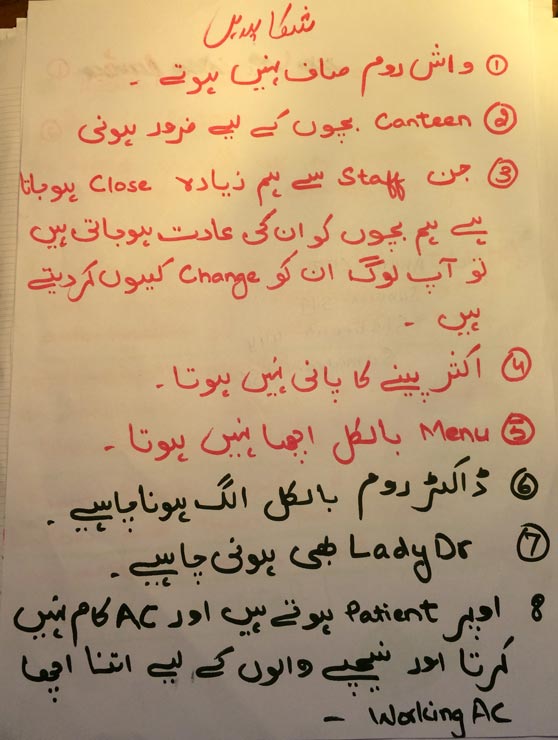 شکایتیں
① واش روم صاف نہیں ہوتے ۔
② Canteen بچوں کے لیے ضرور ہونی
③ جن Staff سے ہم زیادہ Close ہوجاتا
ہے ہم بچوں کو ان کی عادت ہوجاتی ہیں
تو آپ لوگ ان کو Change کیوں کردیتے
ہیں ۔
④ اکثر پینے کا پانی نہیں ہوتا ۔
⑤ Menu بالکل اچھا نہیں ہوتا ۔
⑥ ڈاکٹر روم بالکل الگ ہونا چاہیے ۔
⑦ Lady Dr بھی ہونی چاہیے ۔
8 اوپر Patient ہوتے ہیں اور AC کام نہیں
کرتا اور نیچے والوں کے لیے اتنا اچھا
Working AC ۔